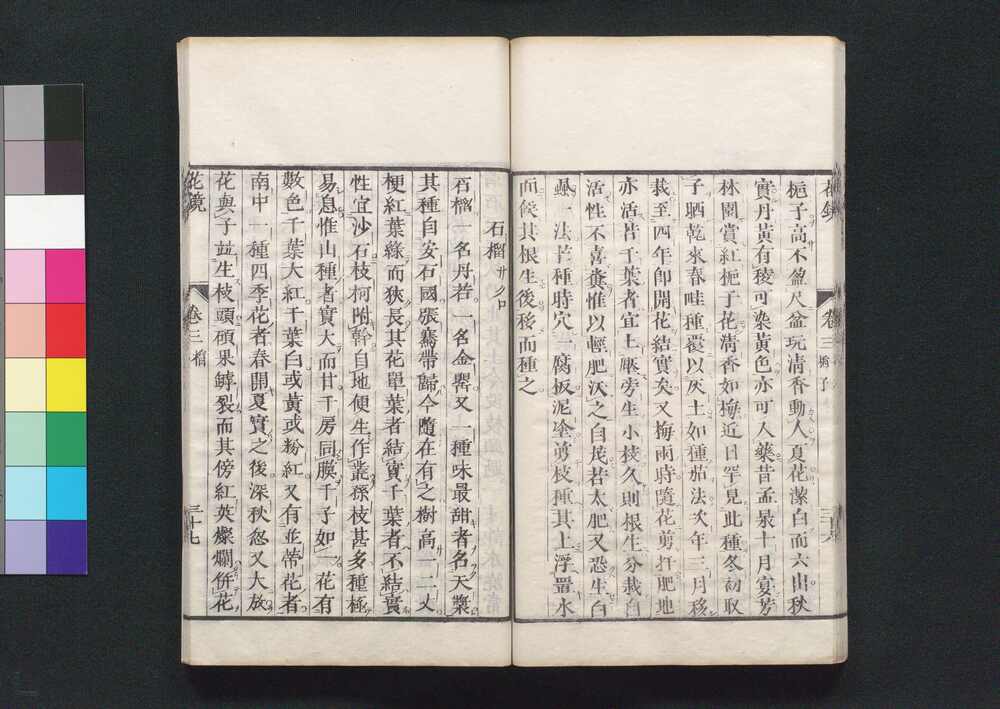 花鏡
卷三 梔子
三十六
梔子高不盈尺盆玩清香動人夏花潔白而六出秋
實丹黃有稜可染黃色亦可入藥昔孟昶十月宴芳
林園賞紅梔子花清香如梅近日罕見此種冬初取
子晒乾來春畦種覆以灰土如種茄法次年三月移
栽至四年卽開花結實矣又梅雨時隨花剪扦肥地
亦活若千葉者宜上壓旁生小枝久則根生分栽自
活性不喜糞惟以輕肥沃之自茂若太肥又恐生白
虱一法芒種時穴一腐板泥塗剪枝種其上浮置水
面候其根生後移而種之
石榴 サクロ
石榴一名丹若一名金罌又一種味最甜者名天漿
其種自安石國張騫帶歸今隨在有之樹高一二丈
梗紅葉綠而狹長其花單葉者結實千葉者不結實
性宜沙石枝柯附幹自地便生作叢孫枝甚多種極
易息惟山種者實大而甘千房同膜千子如一花有
數色千葉大紅千葉白或黃或粉紅又有並蒂花者
南中一種四季花者春開夏實之後深秋忽又大放
花與子並生枝頭碩果罅裂而其傍紅英燦爛併花
花鏡
卷三 榴
三十七